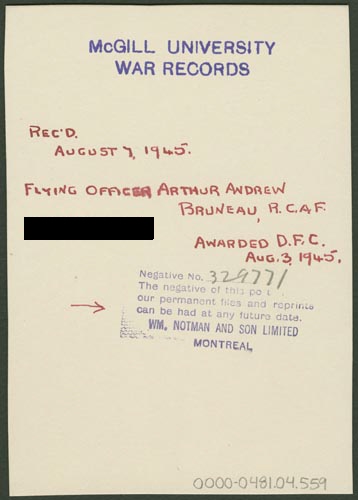 McGILL UNIVERSITY
WAR RECORDS
REC'D.
AUGUST 7, 1945.
FLYING OFFICER ARTHUR ANDREW
BRUNEAU, R.C.A.F.
AWARDED D.F.C.
AUG. 3, 1945.
Negative No. 329771
The negative of this
our permanent files and reprints
can be had at any future date.
WM. NOTMAN AND SON LIMITED
MONTREAL
0000-0481.04.559